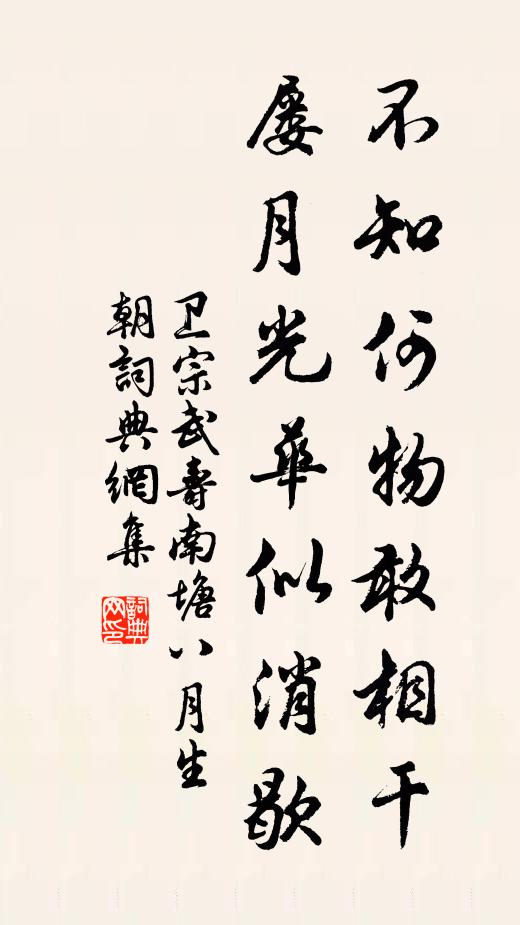 不知何物敢相干
屡月光華似消歇
卫宗武壽南塘八月生
朝詞典網集
詞典网印